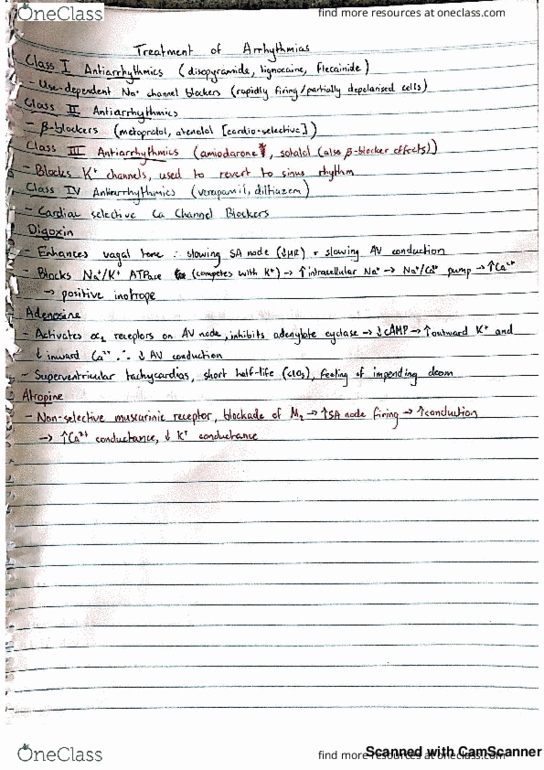 OneClass
find more resources at oneclass.com
Treatment of Arrhythmias
Class I Antiarrhythmics (disopyramide, lignocaine, flecainide)
- Use-dependent Na+ channel blockers (rapidly firing/partially depolarised cells)
Class II Antiarrhythmics
- β-blockers (metoprolol, atenolol [cardio-selective])
Class III Antiarrhythmics (amiodarone, sotalol (also β-blocker effects))
- Blocks K+ channels, used to revert to sinus rhythm
Class IV Antiarrhythmics (verapamil, diltiazem)
- Cardial selective Ca Channel Blockers
Digoxin
- Enhances vagal tone ∴ slowing SA node (↓HR) + slowing AV conduction
- Blocks Na+/K+ ATPase (competes with K+) → ↑intracellular Na+ → Na+/Ca2+ pump → ↑Ca2+
→ positive inotrope
Adenosine
- Activates α2 receptors on AV node, inhibits adenylate cyclase → ↓cAMP → ↑outward K+ and
↓ inward Ca2+ ∴ ↓ AV conduction
- Superventricular tachycardias, short half-life (<10s), feeling of impending doom
Atropine
- Non-selective muscarinic receptor, blockade of M2 → ↑SA node firing → ↑conduction
→ ↑Ca2+ conductance, ↓ K+ conductance
OneClass
find more resources at oneclass.com
Scanned with CamScanner